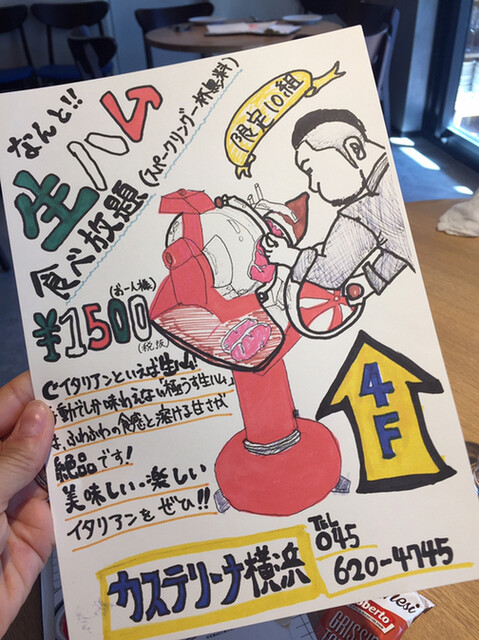 なんと!!
生ハム
食べ放題
(スパークリング一杯無料)
限定10組
(お一人様)
¥1500
(税抜)
イタリアンといえば生ハム!
動でしか味わえない「極うす生ハム」
は、ふわふわの食感と溶ける甘さが
絶品です!
美味しい・楽しい
イタリアンをぜひ!!
4F
カステリーナ横浜
TEL
045
620-4745
Roberto
GRISSI